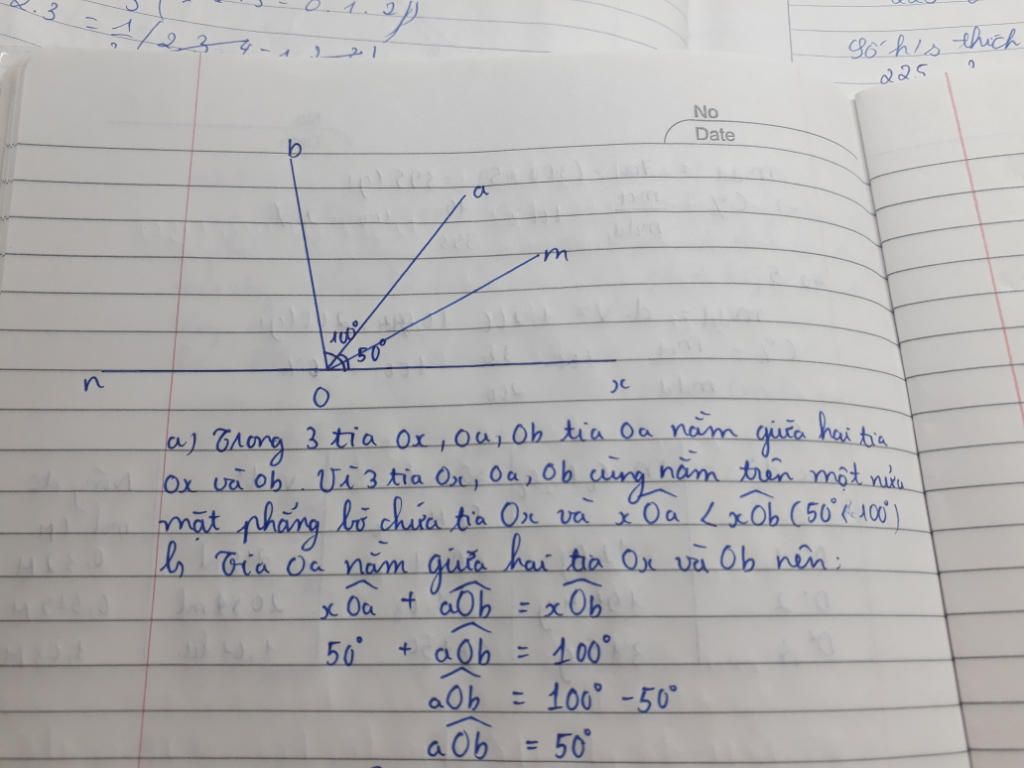 2.3 = 1/
Số h/s thích
225
No
Date
b
a
m
100°
50°
n
O
x
a) Trong 3 tia Ox, Oa, Ob tia Oa nằm giữa hai tia
Ox và Ob. Vì 3 tia Ox, Oa, Ob cùng nằm trên một nửa
mặt phẳng bờ chứa tia Ox và xÔa < xÔb (50° < 100°)
b, Tia Oa nằm giữa hai tia Ox và Ob nên:
xÔa + aÔb = xÔb
50° + aÔb = 100°
aÔb = 100° - 50°
aÔb = 50°